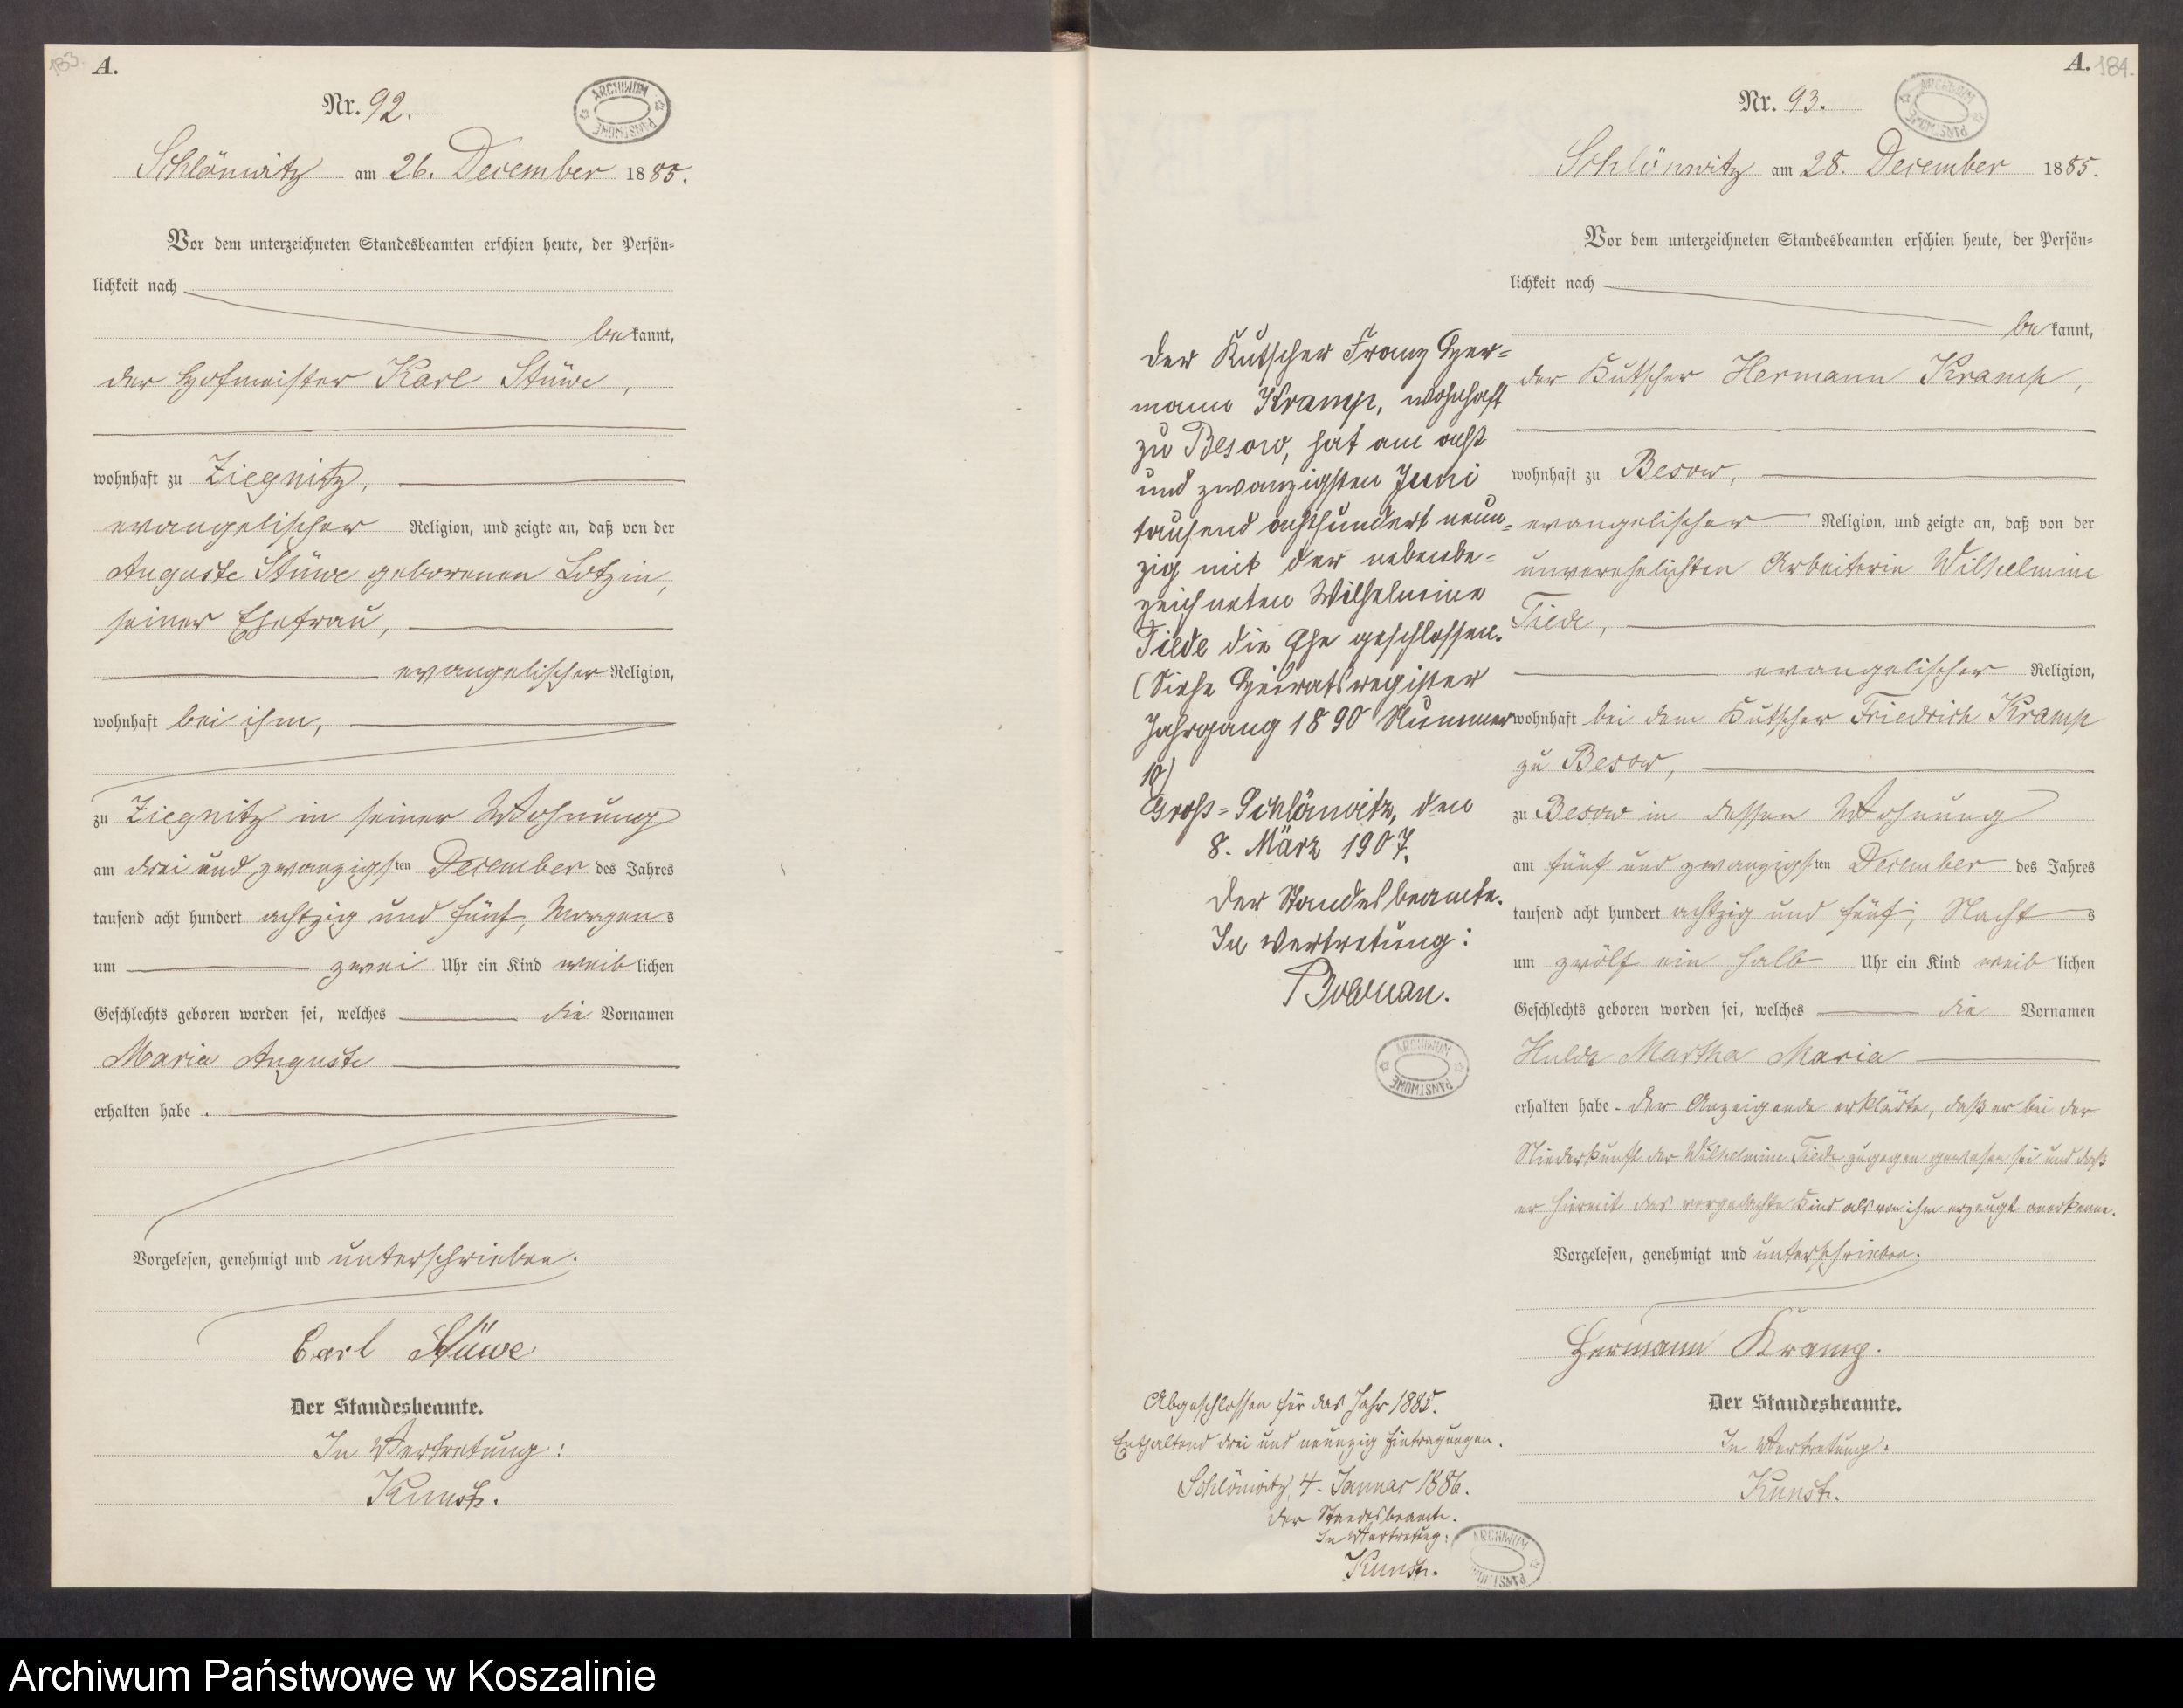 183.
A.
Nr. 92.
ARCHIWUM PAŃSTWOWE
Schlönwitz am 26. December 1885.
Vor dem unterzeichneten Standesbeamten erschien heute, der Persön=
lichkeit nach
bekannt,
der Hofmeister Karl Stüwe,
wohnhaft zu Ziegnitz,
evangelischer Religion, und zeigte an, daß von der
Auguste Stüwe geborenen Lotzin,
seiner Ehefrau,
evangelischer Religion,
wohnhaft bei ihm,
zu Ziegnitz in seiner Wohnung
am drei und zwanzigsten December des Jahres
tausend acht hundert achtzig und fünf, Morgens
um zwei Uhr ein Kind weiblichen
Geschlechts geboren worden sei, welches die Vornamen
Maria Auguste
erhalten habe.
Vorgelesen, genehmigt und unterschrieben.
Carl Stüwe
Der Standesbeamte.
In Vertretung:
Kunst.
A. 184.
Nr. 93.
ARCHIWUM PAŃSTWOWE
Schlönwitz am 28. December 1885.
Vor dem unterzeichneten Standesbeamten erschien heute, der Persön=
lichkeit nach
bekannt,
der Kutscher Hermann Kramp,
wohnhaft zu Besow,
evangelischer Religion, und zeigte an, daß von der
unverehelichten Arbeiterin Wilhelmine
Tiede,
evangelischer Religion,
wohnhaft bei dem Kutscher Friedrich Kramp
zu Besow,
zu Besow in dessen Wohnung
am fünf und zwanzigsten December des Jahres
tausend acht hundert achtzig und fünf, Nachts
um zwölf ein halb Uhr ein Kind weiblichen
Geschlechts geboren worden sei, welches die Vornamen
Hulda Martha Maria
erhalten habe. Der Anzeigende erklärte, daß er bei der
Niederkunft der Wilhelmine Tiede zugegen gewesen sei und daß
er hiermit das vorgedachte Kind als von ihm erzeugt anerkenne.
Vorgelesen, genehmigt und unterschrieben.
Hermann Kramp.
Der Standesbeamte.
In Vertretung.
Kunst.
Der Kutscher Franz Her=
mann Kramp, wohnhaft
zu Besow, hat am acht
und zwanzigsten Juni
tausend achthundert neun=
zig mit der nebenbe=
zeichneten Wilhelmine
Tiede die Ehe geschlossen.
(Siehe Heiratsregister
Jahrgang 1890 Nummer
10)
Groß=Schlönwitz, den
8. März 1907.
Der Standesbeamte.
In Vertretung:
ARCHIWUM PAŃSTWOWE
Abgeschlossen für das Jahr 1885.
Enthaltend drei und neunzig Eintragungen.
Schlönwitz, 4. Januar 1886.
Der Standesbeamte.
In Vertretung:
Kunst.
ARCHIWUM PAŃSTWOWE
Archiwum Państwowe w Koszalinie